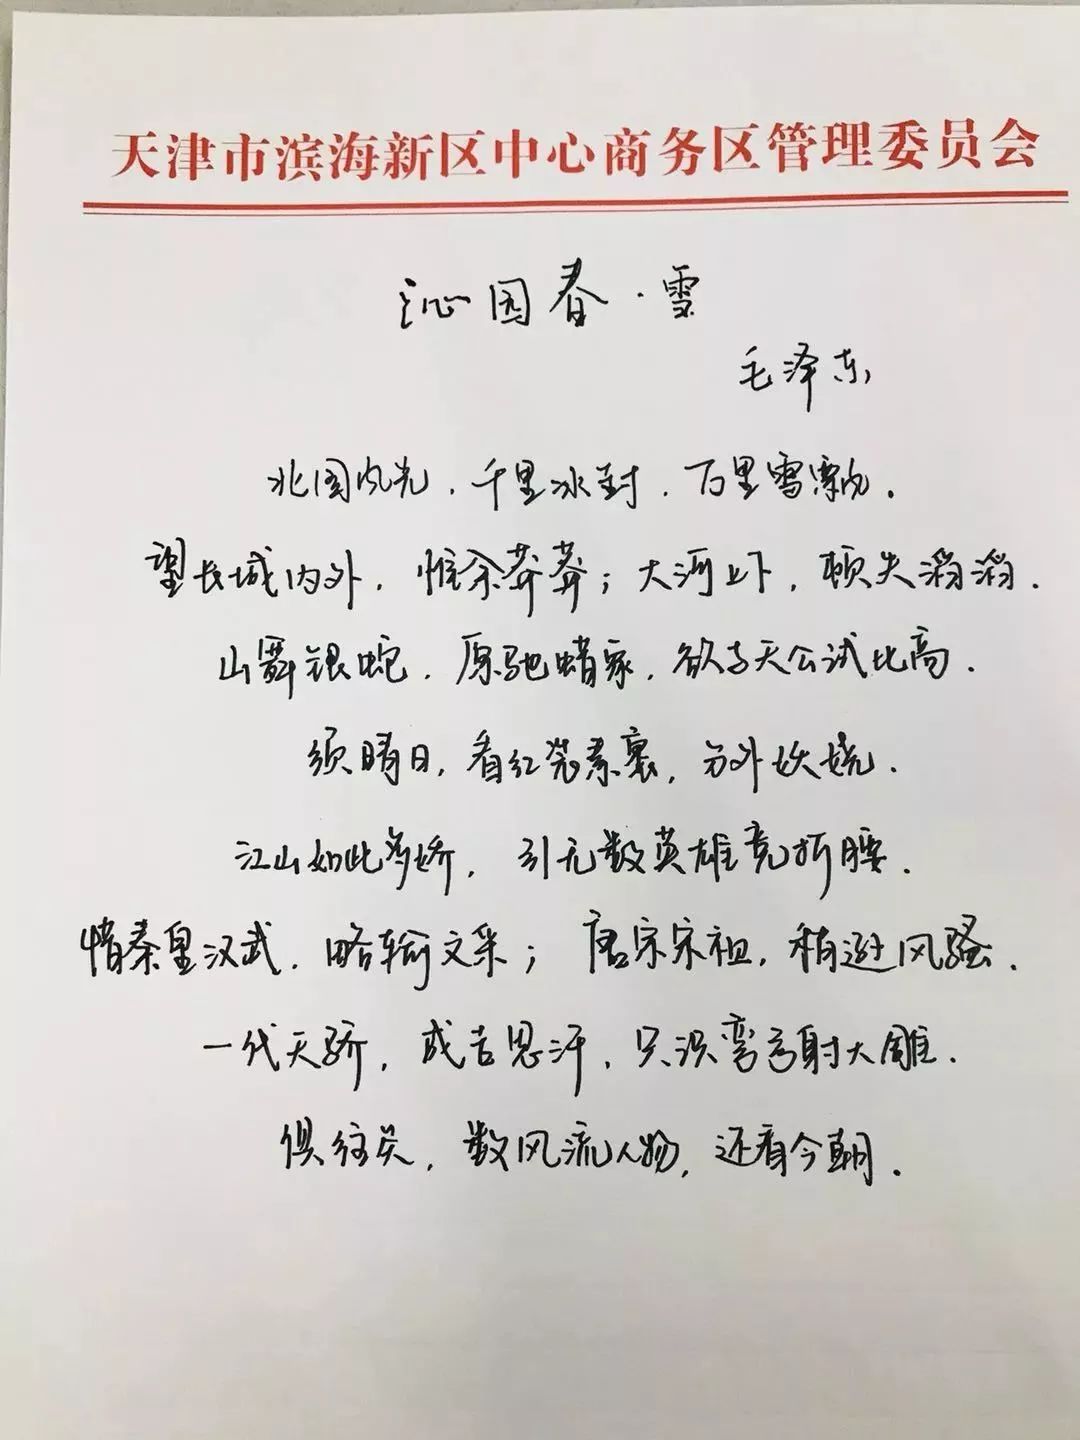 天津市滨海新区中心商务区管理委员会
沁园春·雪
毛泽东
北国风光，千里冰封，万里雪飘。
望长城内外，惟余莽莽；大河上下，顿失滔滔。
山舞银蛇，原驰蜡象，欲与天公试比高。
须晴日，看红装素裹，分外妖娆。
江山如此多娇，引无数英雄竞折腰。
惜秦皇汉武，略输文采；唐宗宋祖，稍逊风骚。
一代天骄，成吉思汗，只识弯弓射大雕。
俱往矣，数风流人物，还看今朝。